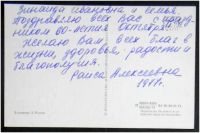 Зинаида Ивановна и семья.
Поздравляю всех Вас с празд-
ником 60-летия Октября.
Желаю Вам всех благ в
жизни, здоровья, радости и
благополучия.
Раиса Алексеевна
1977г.